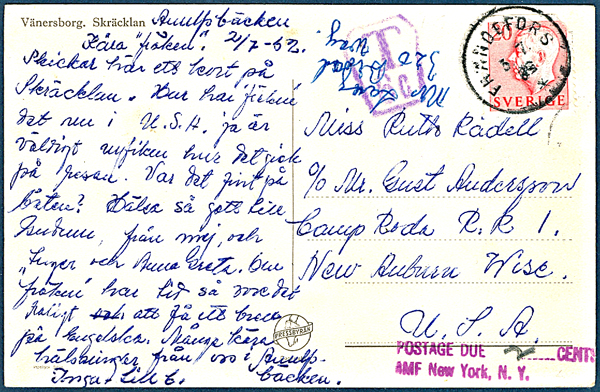 Vänersborg. Skräcklan
Anulfsbäcken
Kära "fröken". 2/7-52.
Skickar här ett kort på
Skräcklan. Hur har fröken
det nu i U.S.A. ja är
väldigt nyfiken hur det gick
på resan. Var det fint på
båten? Hälsa så gott till
från mej, och
Inger och Anna Greta. Om
fröken har tid så vore det
roligt att få ett brev
på Engelska. Många kära
hälsningar från oss i
bäcken.
PRESSBYRÅN
T
c
Mr
322
Way.
FRÄNDEFORS
SVERIGE
Miss Ruth Rådell
c/o Mr. Gust Andersson
Camp Roda R. R 1.
New Auburn Wisc.
U. S. A.
POSTAGE DUE 2 CENTS
AMF New York, N. Y.